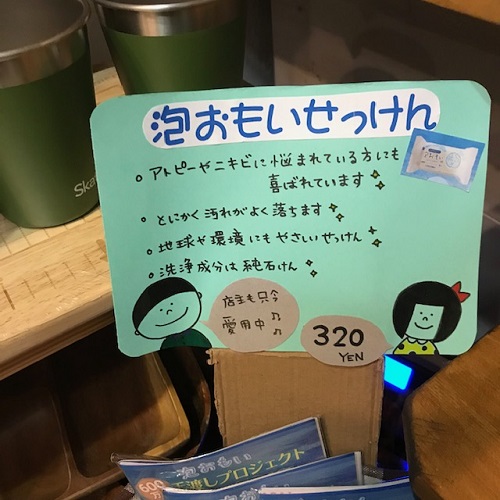 泡おもいせっけん
アトピーやニキビに悩まれている方にも
喜ばれています
とにかく汚れがよく落ちます
地球や環境にもやさいせっけん
洗浄成分は純石けん
店主も只今
愛用中♪♪
320
YEN
泡おもい
手渡しプロジェクト